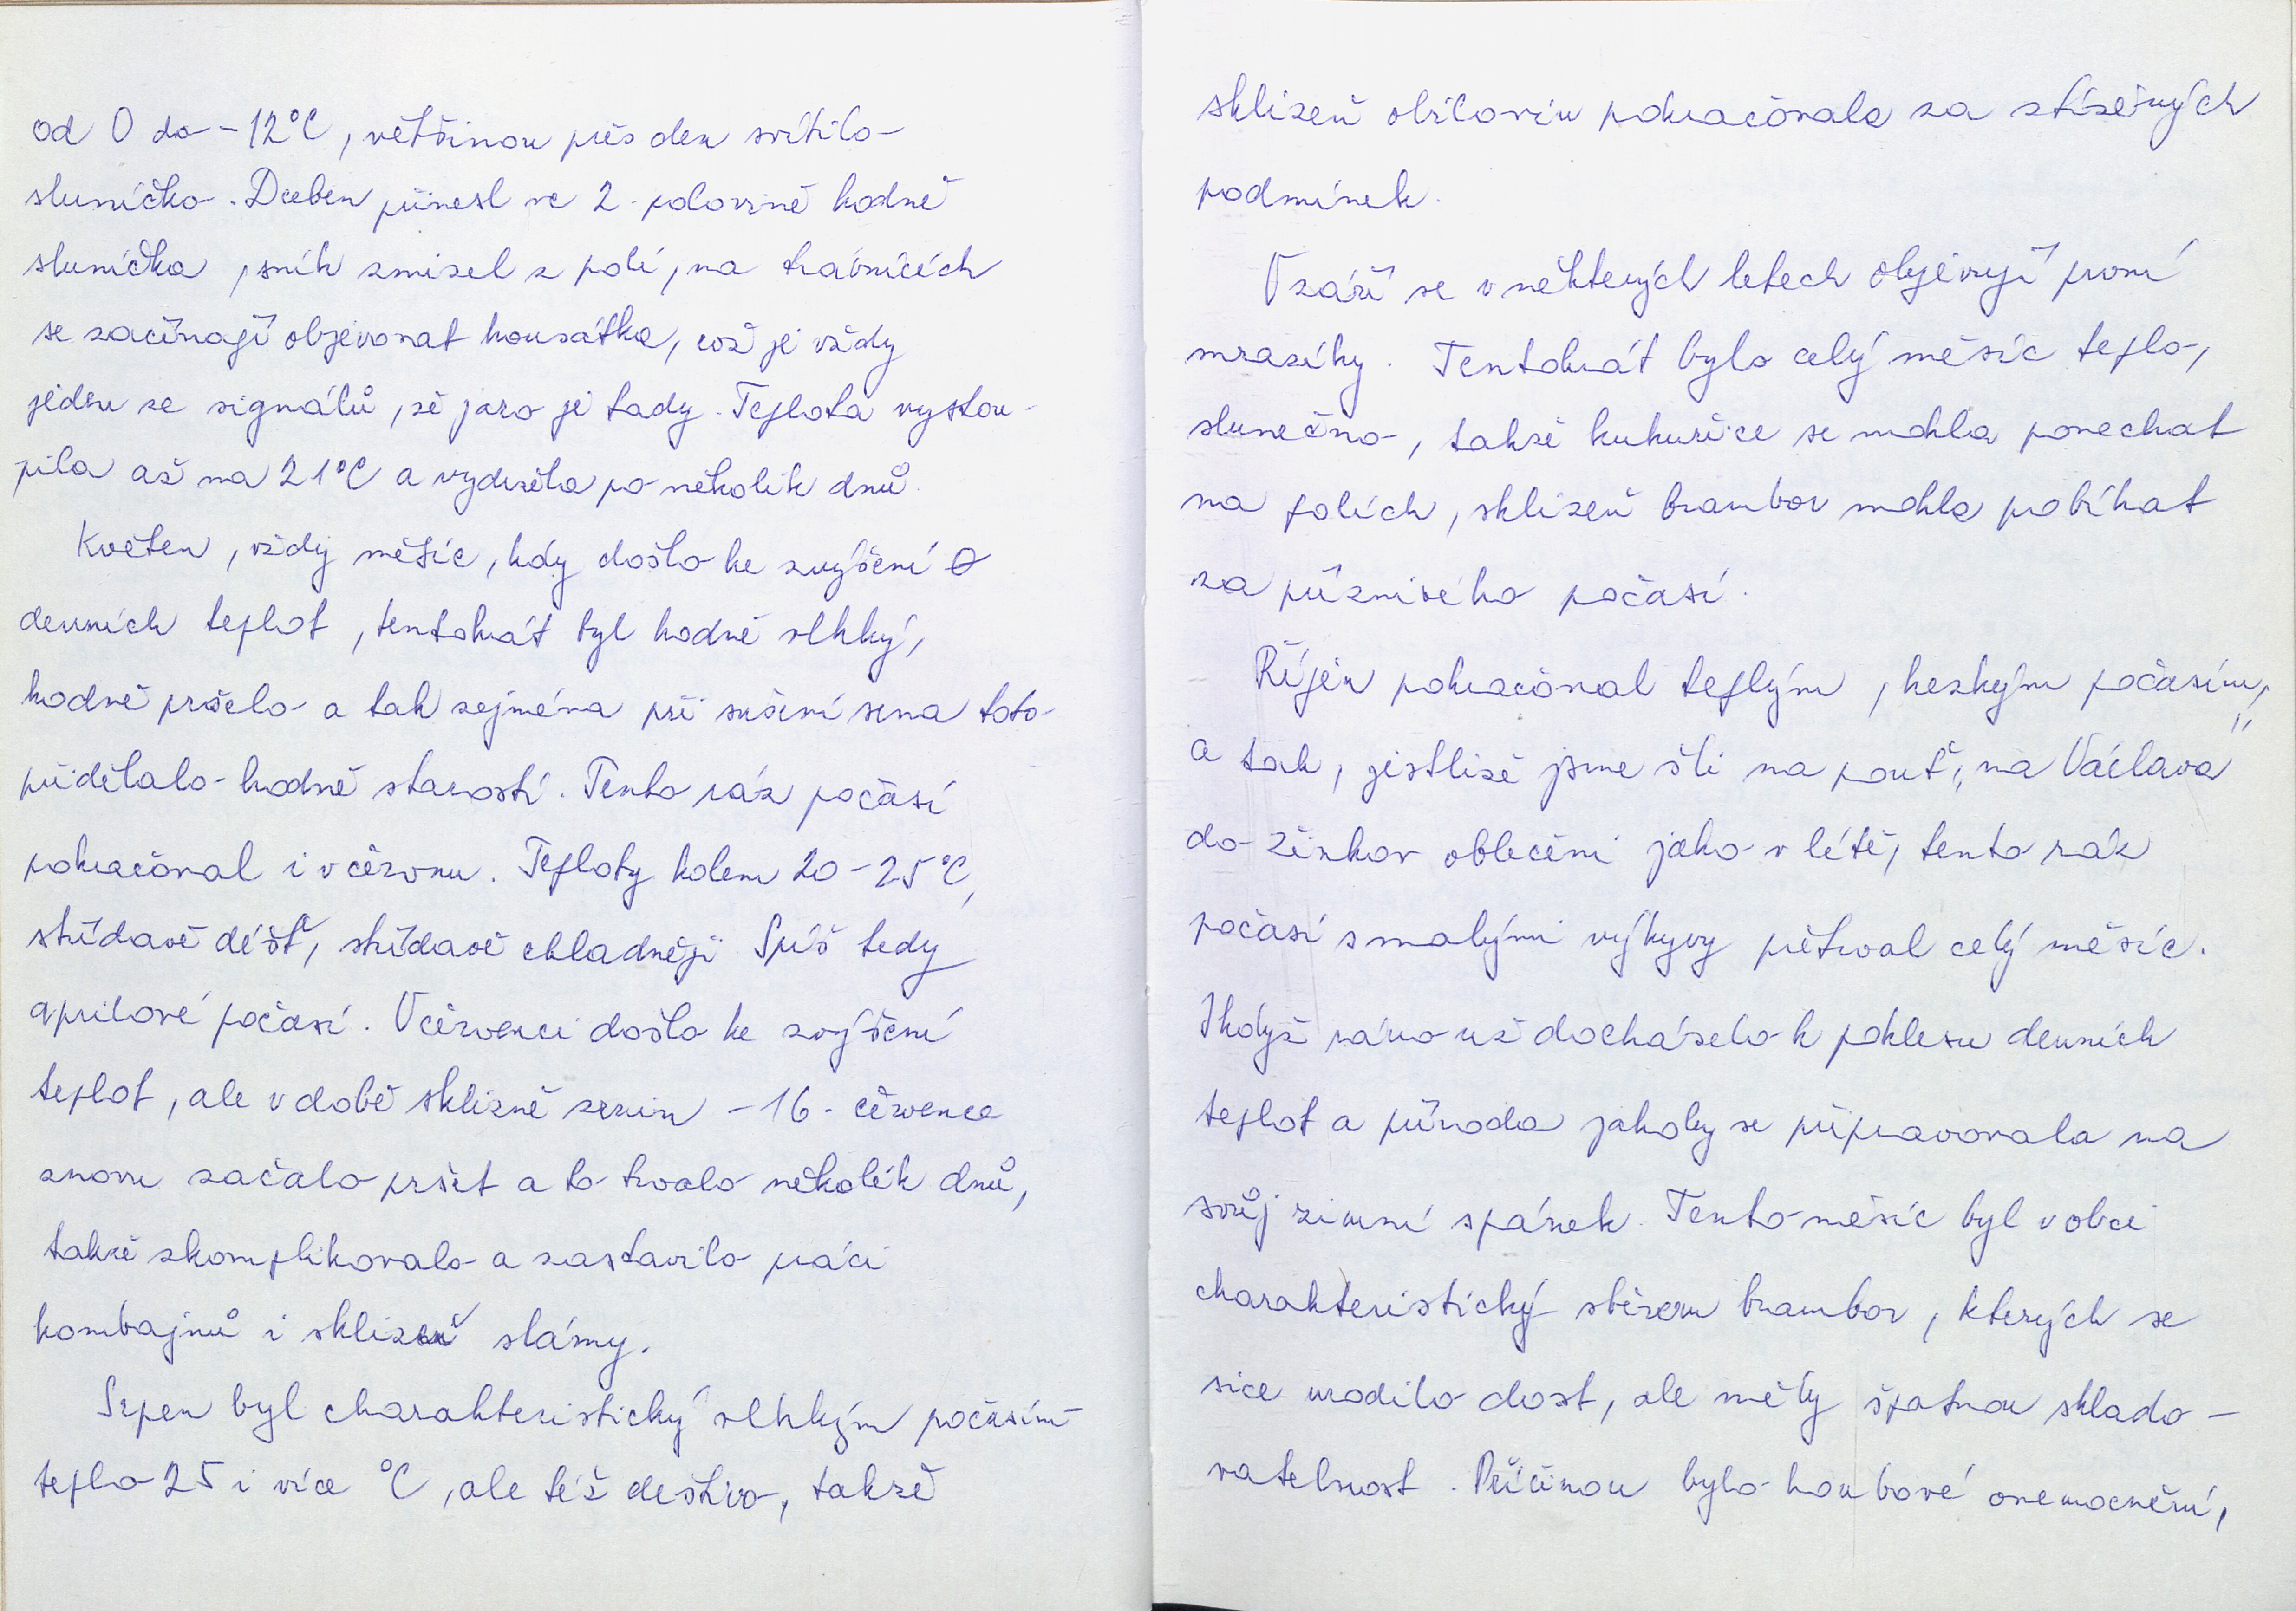 od 0 do -12°C, většinou přes den svítilo
sluníčko. Duben přinesl ve 2. polovině hodně
sluníčka, sníh zmizel z polí, na trávnících
se začínají objevovat housátka, což je vždy
jeden ze signálů, že jaro je tady. Teplota vystou-
pila až na 21°C a vydržela po několik dnů.
Květen, vždy měsíc, kdy došlo ke zvýšení ∅
denních teplot, tentokrát byl hodně vlhký,
hodně pršelo a tak zejména při sušení sena toto
přidělalo hodně starostí. Tento ráz počasí
pokračoval i v červnu. Teploty kolem 20-25°C,
střídavě déšť, střídavě chladněji. Spíš tedy
aprilové počasí. V červenci došlo ke zvýšení
teplot, ale v době sklizně zrnin - 16. července
znovu začalo pršet a to trvalo několik dnů,
takže zkomplikovalo a zastavilo práci
kombajnů i sklizeň slámy.
Srpen byl charakteristický vlhkým počasím -
teplo 25 i více °C, ale též deštivo, takže
sklizeň obilovin pokračovala za ztížených
podmínek.
V září se v některých letech objevují první
mrazíky. Tentokrát bylo celý měsíc teplo,
slunečno, takže kukuřice se mohla ponechat
na polích, sklizeň brambor mohla probíhat
za příznivého počasí.
Říjen pokračoval teplým, hezkým počasím,
a tak, jestliže jsme šli na pouť "na Václava"
do Žinkov oblečeni jako v létě, tento ráz
počasí s malými výkyvy přetrval celý měsíc.
Ikdyž ráno už docházelo k poklesu denních
teplot a příroda jakoby se připravovala na
svůj zimní spánek. Tento měsíc byl v obci
charakteristický sběrem brambor, kterých se
sice urodilo dost, ale měly špatnou sklado-
vatelnost. Příčinou bylo houbové onemocnění,